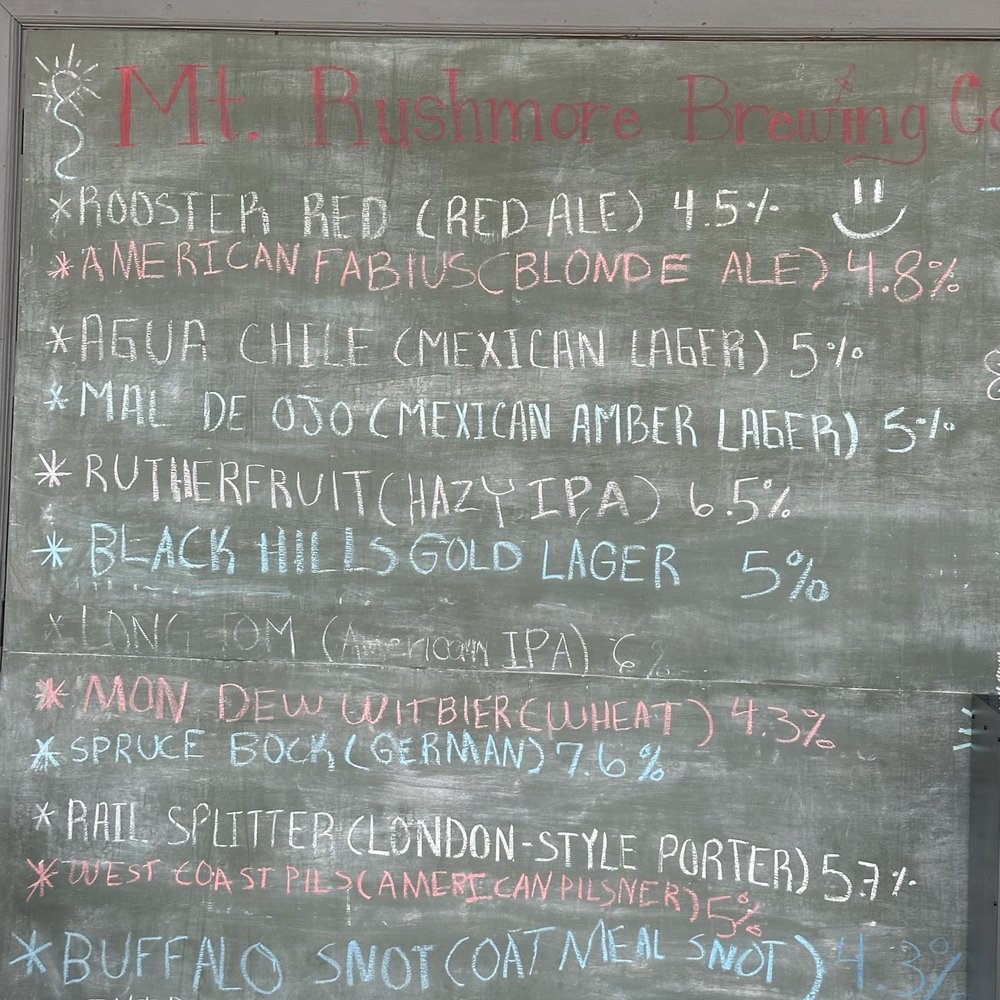 Mt. Rushmore Brewing Co
*ROOSTER RED (RED ALE) 4.5%
*AMERICAN FABIUS (BLONDE ALE) 4.8%
*AGUA CHILE (MEXICAN LAGER) 5%
*MAL DE OJO (MEXICAN AMBER LAGER) 5%
*RUTHERFRUIT (HAZY IPA) 6.5%
*BLACK HILLS GOLD LAGER 5%
*LONG TOM (American IPA) 6%
*MON DEW WITBIER (WHEAT) 4.3%
*SPRUCE BOCK (GERMAN) 7.6%
*RAIL SPLITTER (LONDON-STYLE PORTER) 5.7%
*WEST COAST PILS (AMERICAN PILSNER) 5%
*BUFFALO SNOT (OATMEAL SNOT) 4.3%